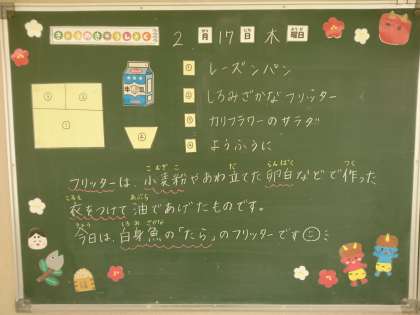 きょうのきゅうしょく
2月17日木曜日
① レーズンパン
② しろみざかなフリッター
③ カリフラワーのサラダ
④ ようふうに
フリッターは、小麦粉やあわ立てた卵白などで作った
衣をつけて油であげたものです。
今日は、白身魚の「たら」のフリッターです